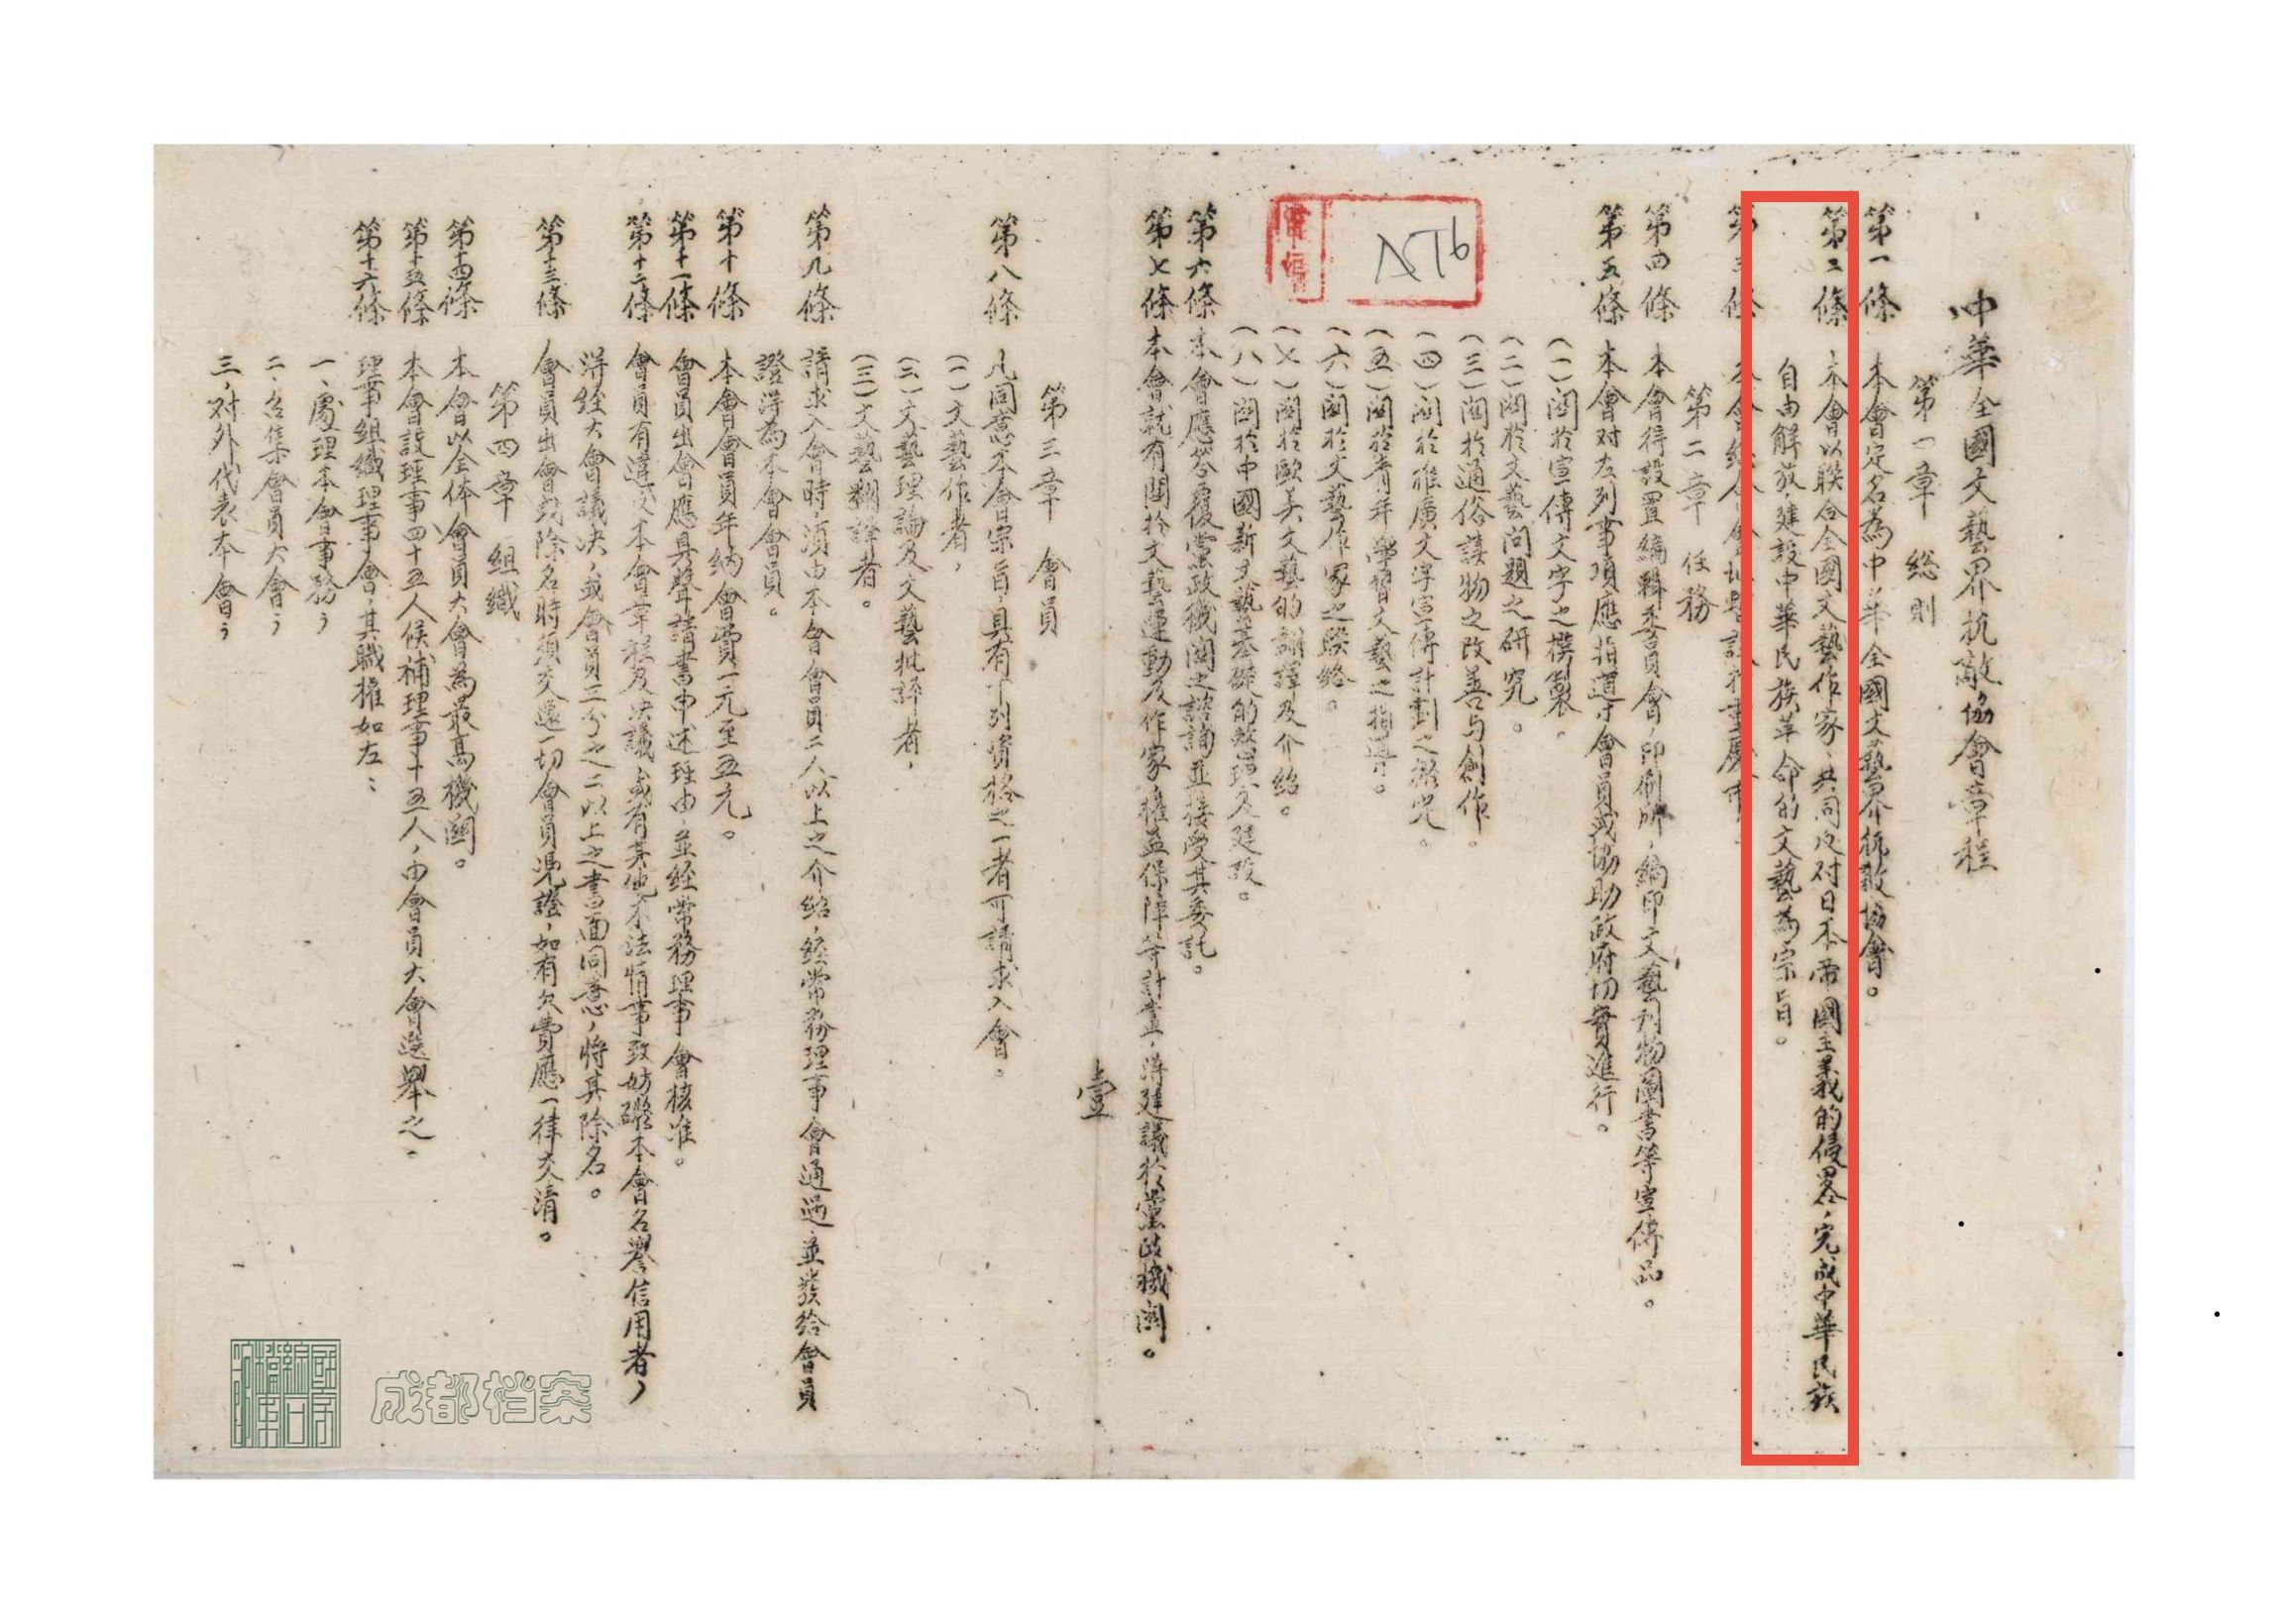 中華全國文藝界抗敵協會章程
第一章 総則
第一條 本會定名為中華全國文藝界抗敵協會。
第二條 本會以联合全國文藝作家,共同反对日本帝國主義的侵畧,完成中華民族
自由解放,建設中華民族革命的文藝為宗旨。
第三條 本會總會會址暫設於重慶市。
第二章 任務
第四條 本會得設置編輯委員會,印刷所,編印文藝刊物圖書等宣傳品。
第五條 本會对左列事項應指導會員或協助政府切實進行。
(一)関於宣傳文字之撰製。
(二)関於文藝问題之研究。
(三)関於通俗讀物之改善与創作。
(四)関於推廣文字宣傳計劃之探究。
(五)関於青年學習文藝之指導。
(六)関於文藝作家之联絡。
(七)関於歐美文藝的翻譯及介紹。
(八)関於中國新文藝基礎的整理及建設。
第六條 本會應答覆黨政機関之諮詢並接受其委託。
第七條 本會就有関於文藝運動及作家權益保障等計畫,得建議於黨政機関。
壹
第三章 會員
第八條 凡同意本會宗旨,具有下列資格之一者可請求入會。
(一)文藝作者,
(二)文藝理論及文藝批評者,
(三)文藝翻譯者。
第九條 請求入會時,須由本會會員二人以上之介紹,經常務理事會通過,並發給會員
證,得為本會會員。
第十條 本會會員年納會費一元至五元。
第十一條 會員出會應具聲請書申述理由,並經常務理事會核准。
第十二條 會員有違反本會章程及決議,或有其他不法情事致妨礙本會名譽信用者,
得經大會議决,或會員三分之二以上之書面同意,將其除名。
第十三條 會員出會或除名時須交還一切會員憑證,如有欠費應一律交清。
第四章 組織
第十四條 本會以全体會員大會為最高機関。
第十五條 本會設理事四十五人候補理事十五人,由會員大會選舉之。
第十六條 理事組織理事會,其職權如左:
一、處理本會事務;
二、召集會員大會;
三、对外代表本會;
成都档案